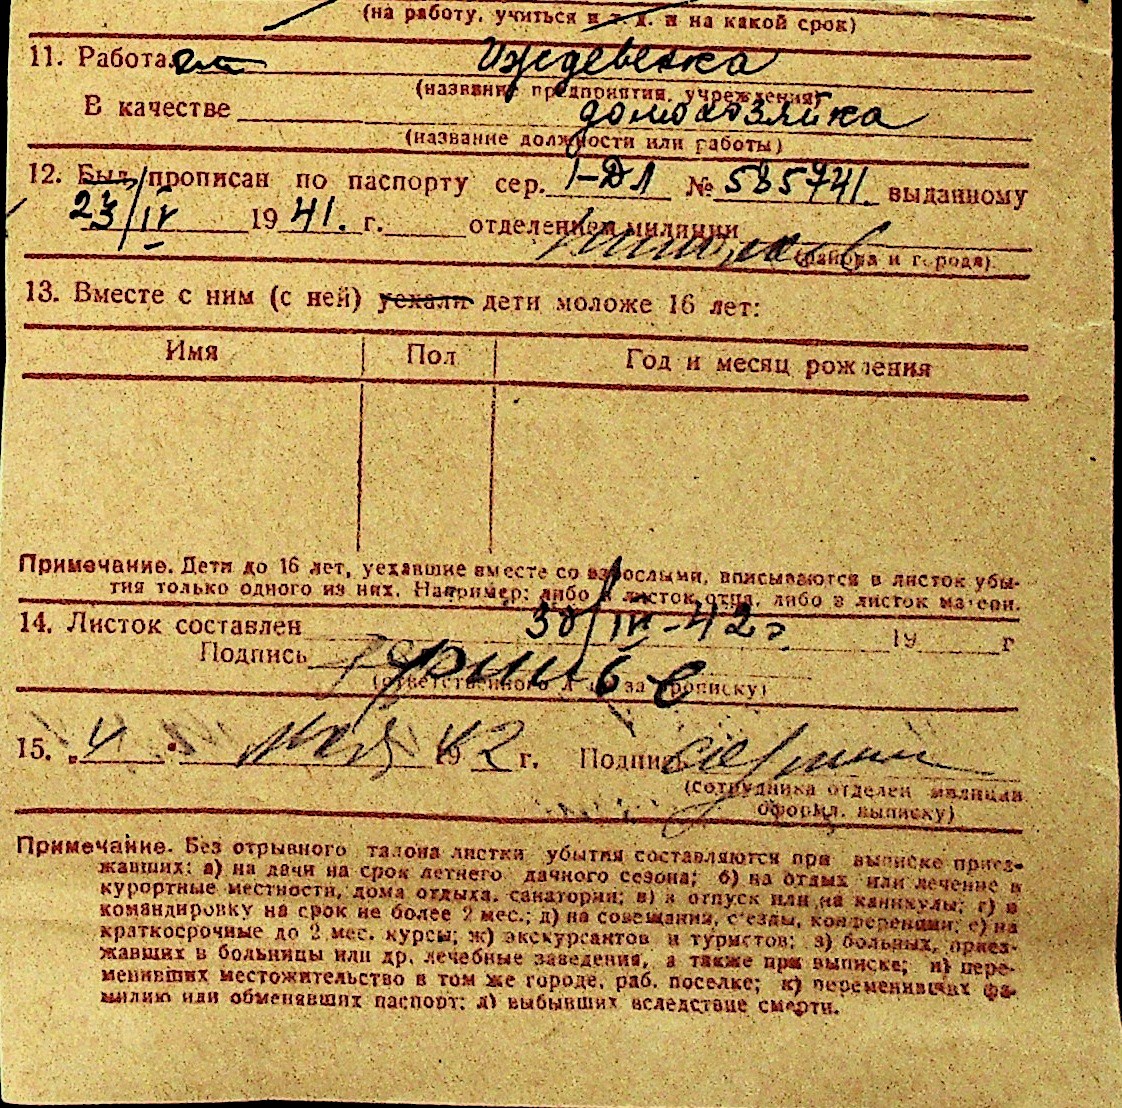 (на работу, учиться и т. д. и на какой срок)
11. Работает Иждевенка
(название предприятия, учреждения)
В качестве домохозяйка
(название должности или работы)
12. Был прописан по паспорту сер. I-ДЛ № 585741. выданному
23/IV 1941. г. отделением милиции
(района и города).
13. Вместе с ним (с ней) уехали дети моложе 16 лет:
Имя Пол Год и месяц рождения
Примечание. Дети до 16 лет, уехавшие вместе со взрослыми, вписываются в листок убы-
тия только одного из них. Например: либо в листок отца, либо в листок матери.
14. Листок составлен 30/IV-42 г. 19 г
Подпись
(ответственного лица за прописку)
15. „4 " мая 1942 г. Подпись
(сотрудника отделен милиции
оформл. выписку)
Примечание. Без отрывного талона листки убытия составляются при выписке приез-
жавших: а) на дачи на срок летнего дачного сезона; б) на отдых или лечение в
курортные местности, дома отдыха, санатории; в) в отпуск или на каникулы; г) в
командировку на срок не более 2 мес.; д) на совещания, с'езды, конференции; е) на
краткосрочные до 2 мес. курсы; ж) экскурсантов и туристов; з) больных, приез-
жавших в больницы или др. лечебные заведения, а также при выписке; и) пере-
менивших местожительство в том же городе, раб. поселке; к) переменивших фа-
милию или обменявших паспорт; л) выбывших вследствие смерти.